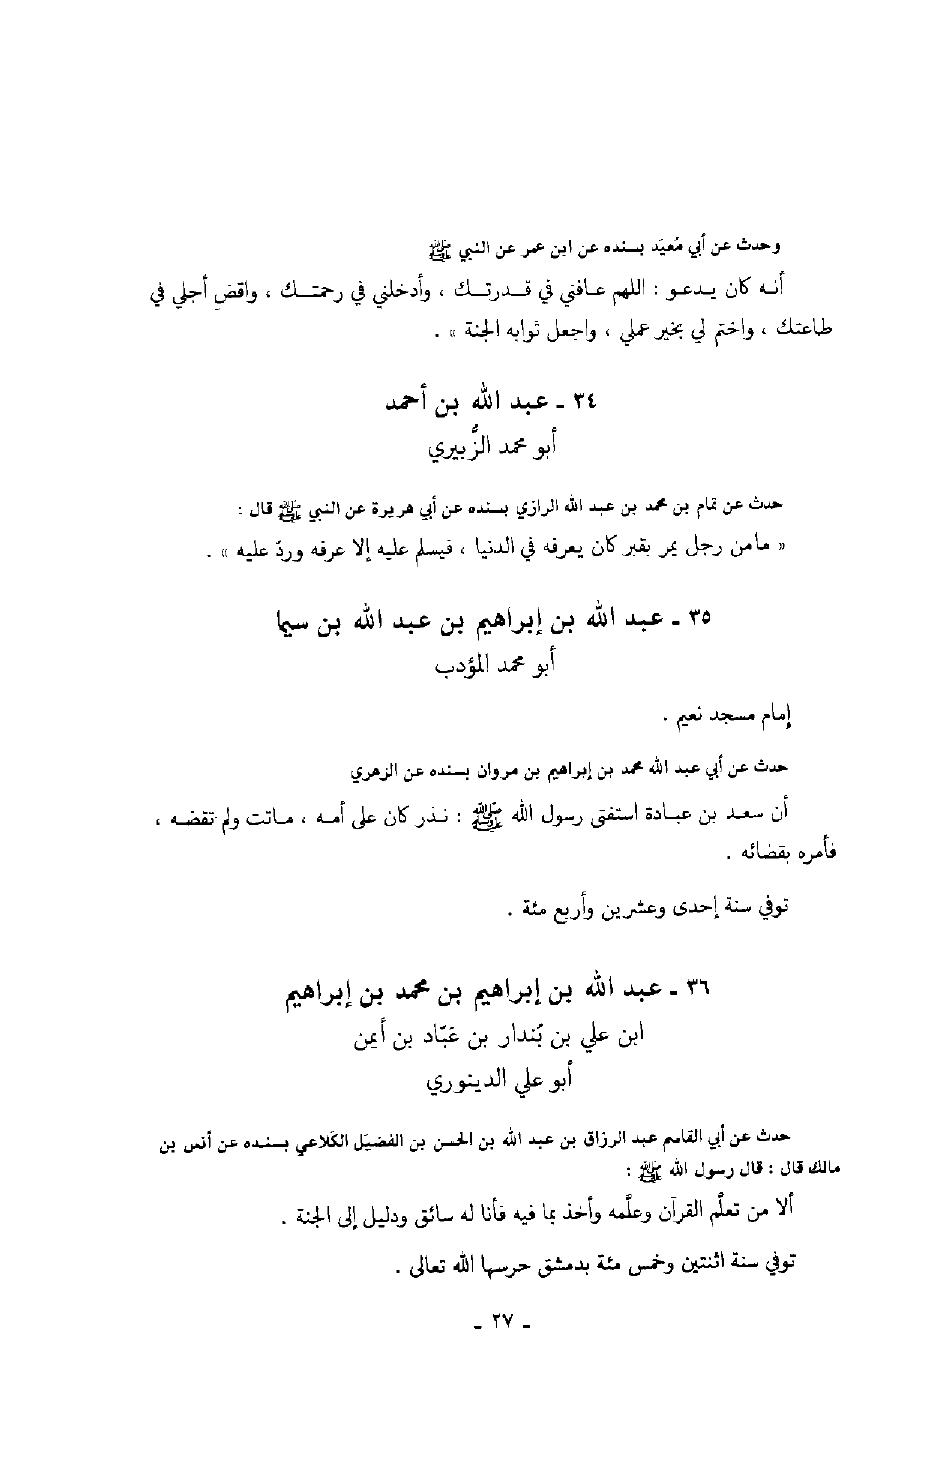 وحدث عن أبي مُعيَد بسنده عن ابن عمر عن النبي ﷺ
أنه كان يدعو : اللهم عافني في قدرتك ، وأدخلني في رحمتك ، واقضِ أجلي في
طاعتك ، واختم لي بخير عملي ، واجعل ثوابه الجنة » .
٣٤ ـ عبد الله بن أحمد
أبو محمد الزُّبيري
حدث عن تمام بن محمد بن عبد الله الرازي بسنده عن أبي هريرة عن النبي ﷺ قال :
« مامن رجل يمر بقبر كان يعرفه في الدنيا ، فيسلم عليه إلا عرفه وردّ عليه » .
٣٥ ـ عبد الله بن إبراهيم بن عبد الله بن سيما
أبو محمد المؤدب
إمام مسجد نعيم .
حدث عن أبي عبد الله محمد بن إبراهيم بن مروان بسنده عن الزهري
أن سعد بن عبادة استفتى رسول الله ﷺ : نذر كان على أمه ، ماتت ولم تقضه ،
فأمره بقضائه .
توفي سنة إحدى وعشرين وأربع مئة .
٣٦ ـ عبد الله بن إبراهيم بن محمد بن إبراهيم
ابن علي بن بُندار بن عَبّاد بن أيمن
أبو علي الدينوري
حدث عن أبي القاسم عبد الرزاق بن عبد الله بن الحسن بن الفضيَل الكَلاعي بسنده عن أنس بن
مالك قال : قال رسول الله ﷺ :
ألا من تعلَّم القرآن وعلَّمه وأخذ بما فيه فأنا له سائق ودليل إلى الجنة .
توفي سنة اثنتين وخمس مئة بدمشق حرسها الله تعالى .
ـ ٢٧ ـ